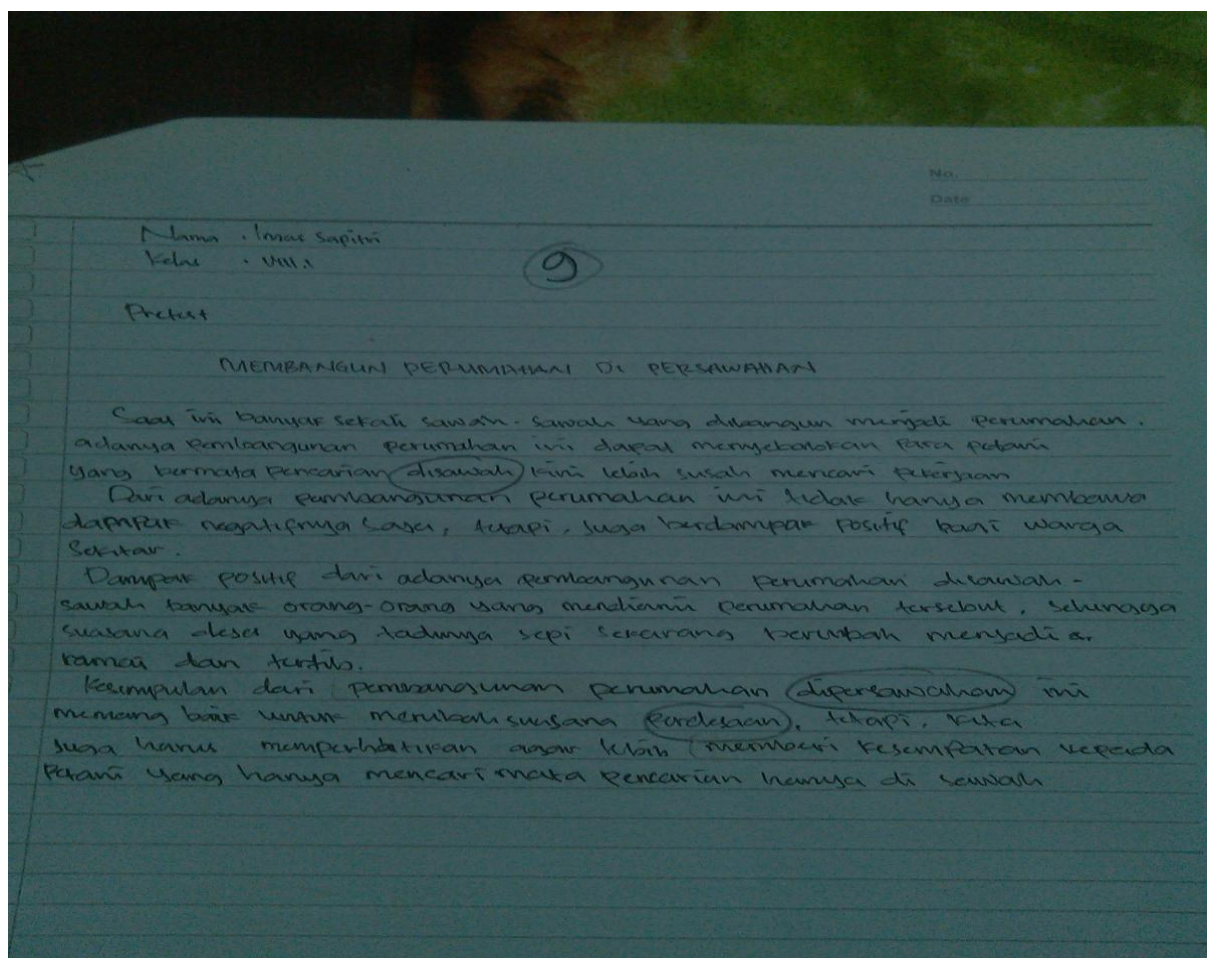 No.
Date
Nama : Sapitri
Kelas : VIII.
9
Pretest
MEMBANGUN PERUMAHAN DI PERSAWAHAN
Saat ini banyak sekali sawah-sawah yang dibangun menjadi perumahan.
adanya pembangunan perumahan ini dapat menyebabkan para petani
yang bermata pencarian disawah kini lebih susah mencari pekerjaan
Dari adanya pembangunan perumahan ini tidak hanya membawa
dapnpak negatifnya saja, tetapi, juga berdampak positif bagi warga
sekitar.
Dampak positif dari adanya pembangunan perumahan disawah-
sawah banyak orang-orang yang mendiami perumahan tersebut, sehingga
suasana desa yang tadinya sepi sekarang berubah menjadi
ramai dan tertib.
Kesimpulan dari pembangunan perumahan dipersawahan ini
memang baik untuk merubah suasana perdesaan, tetapi, kita
juga harus memperhatikan agar lebih memberi kesempatan kepada
petani yang hanya mencari mata pencarian hanya di sawah